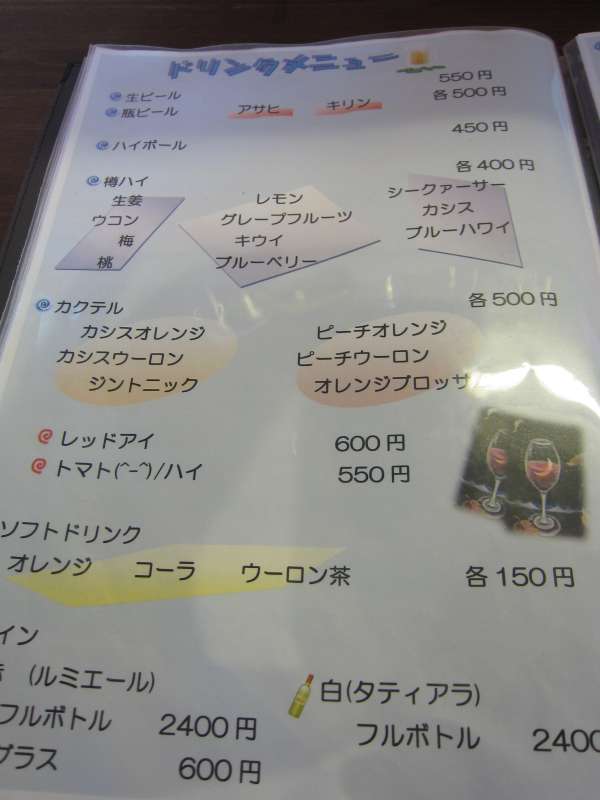 ドリンクメニュー
生ビール 550円
瓶ビール アサヒ キリン 各500円
ハイボール 450円
樽ハイ 各400円
生姜 レモン シークァーサー
ウコン グレープフルーツ カシス
梅 キウイ ブルーハワイ
桃 ブルーベリー
カクテル 各500円
カシスオレンジ ピーチオレンジ
カシスウーロン ピーチウーロン
ジントニック オレンジブロッサム
レッドアイ 600円
トマト(^-^)/ハイ 550円
ソフトドリンク
オレンジ コーラ ウーロン茶 各150円
イン
(ルミエール) 白(タティアラ)
フルボトル 2400円 フルボトル 2400
グラス 600円